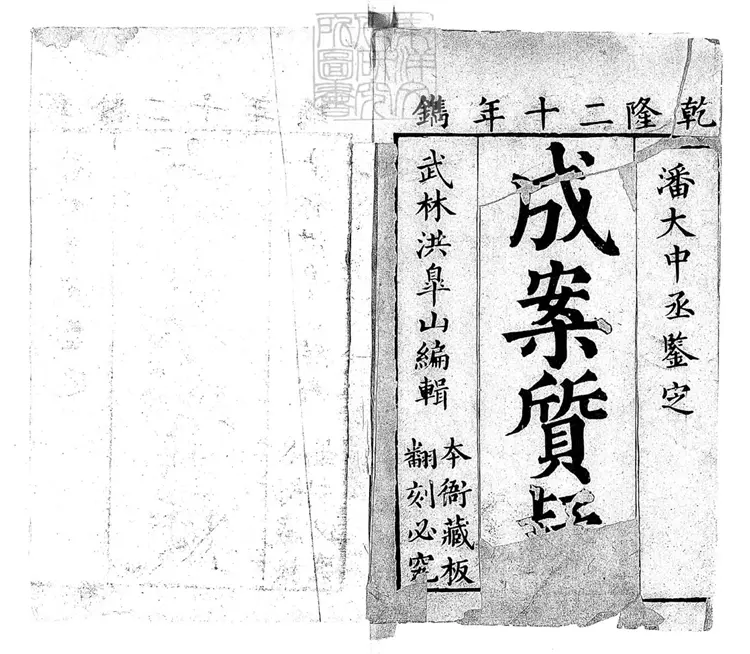 乾隆二十年鐫
潘大中丞鑒定
成案質疑
武林洪臯山編輯
本衙藏板
翻刻必究